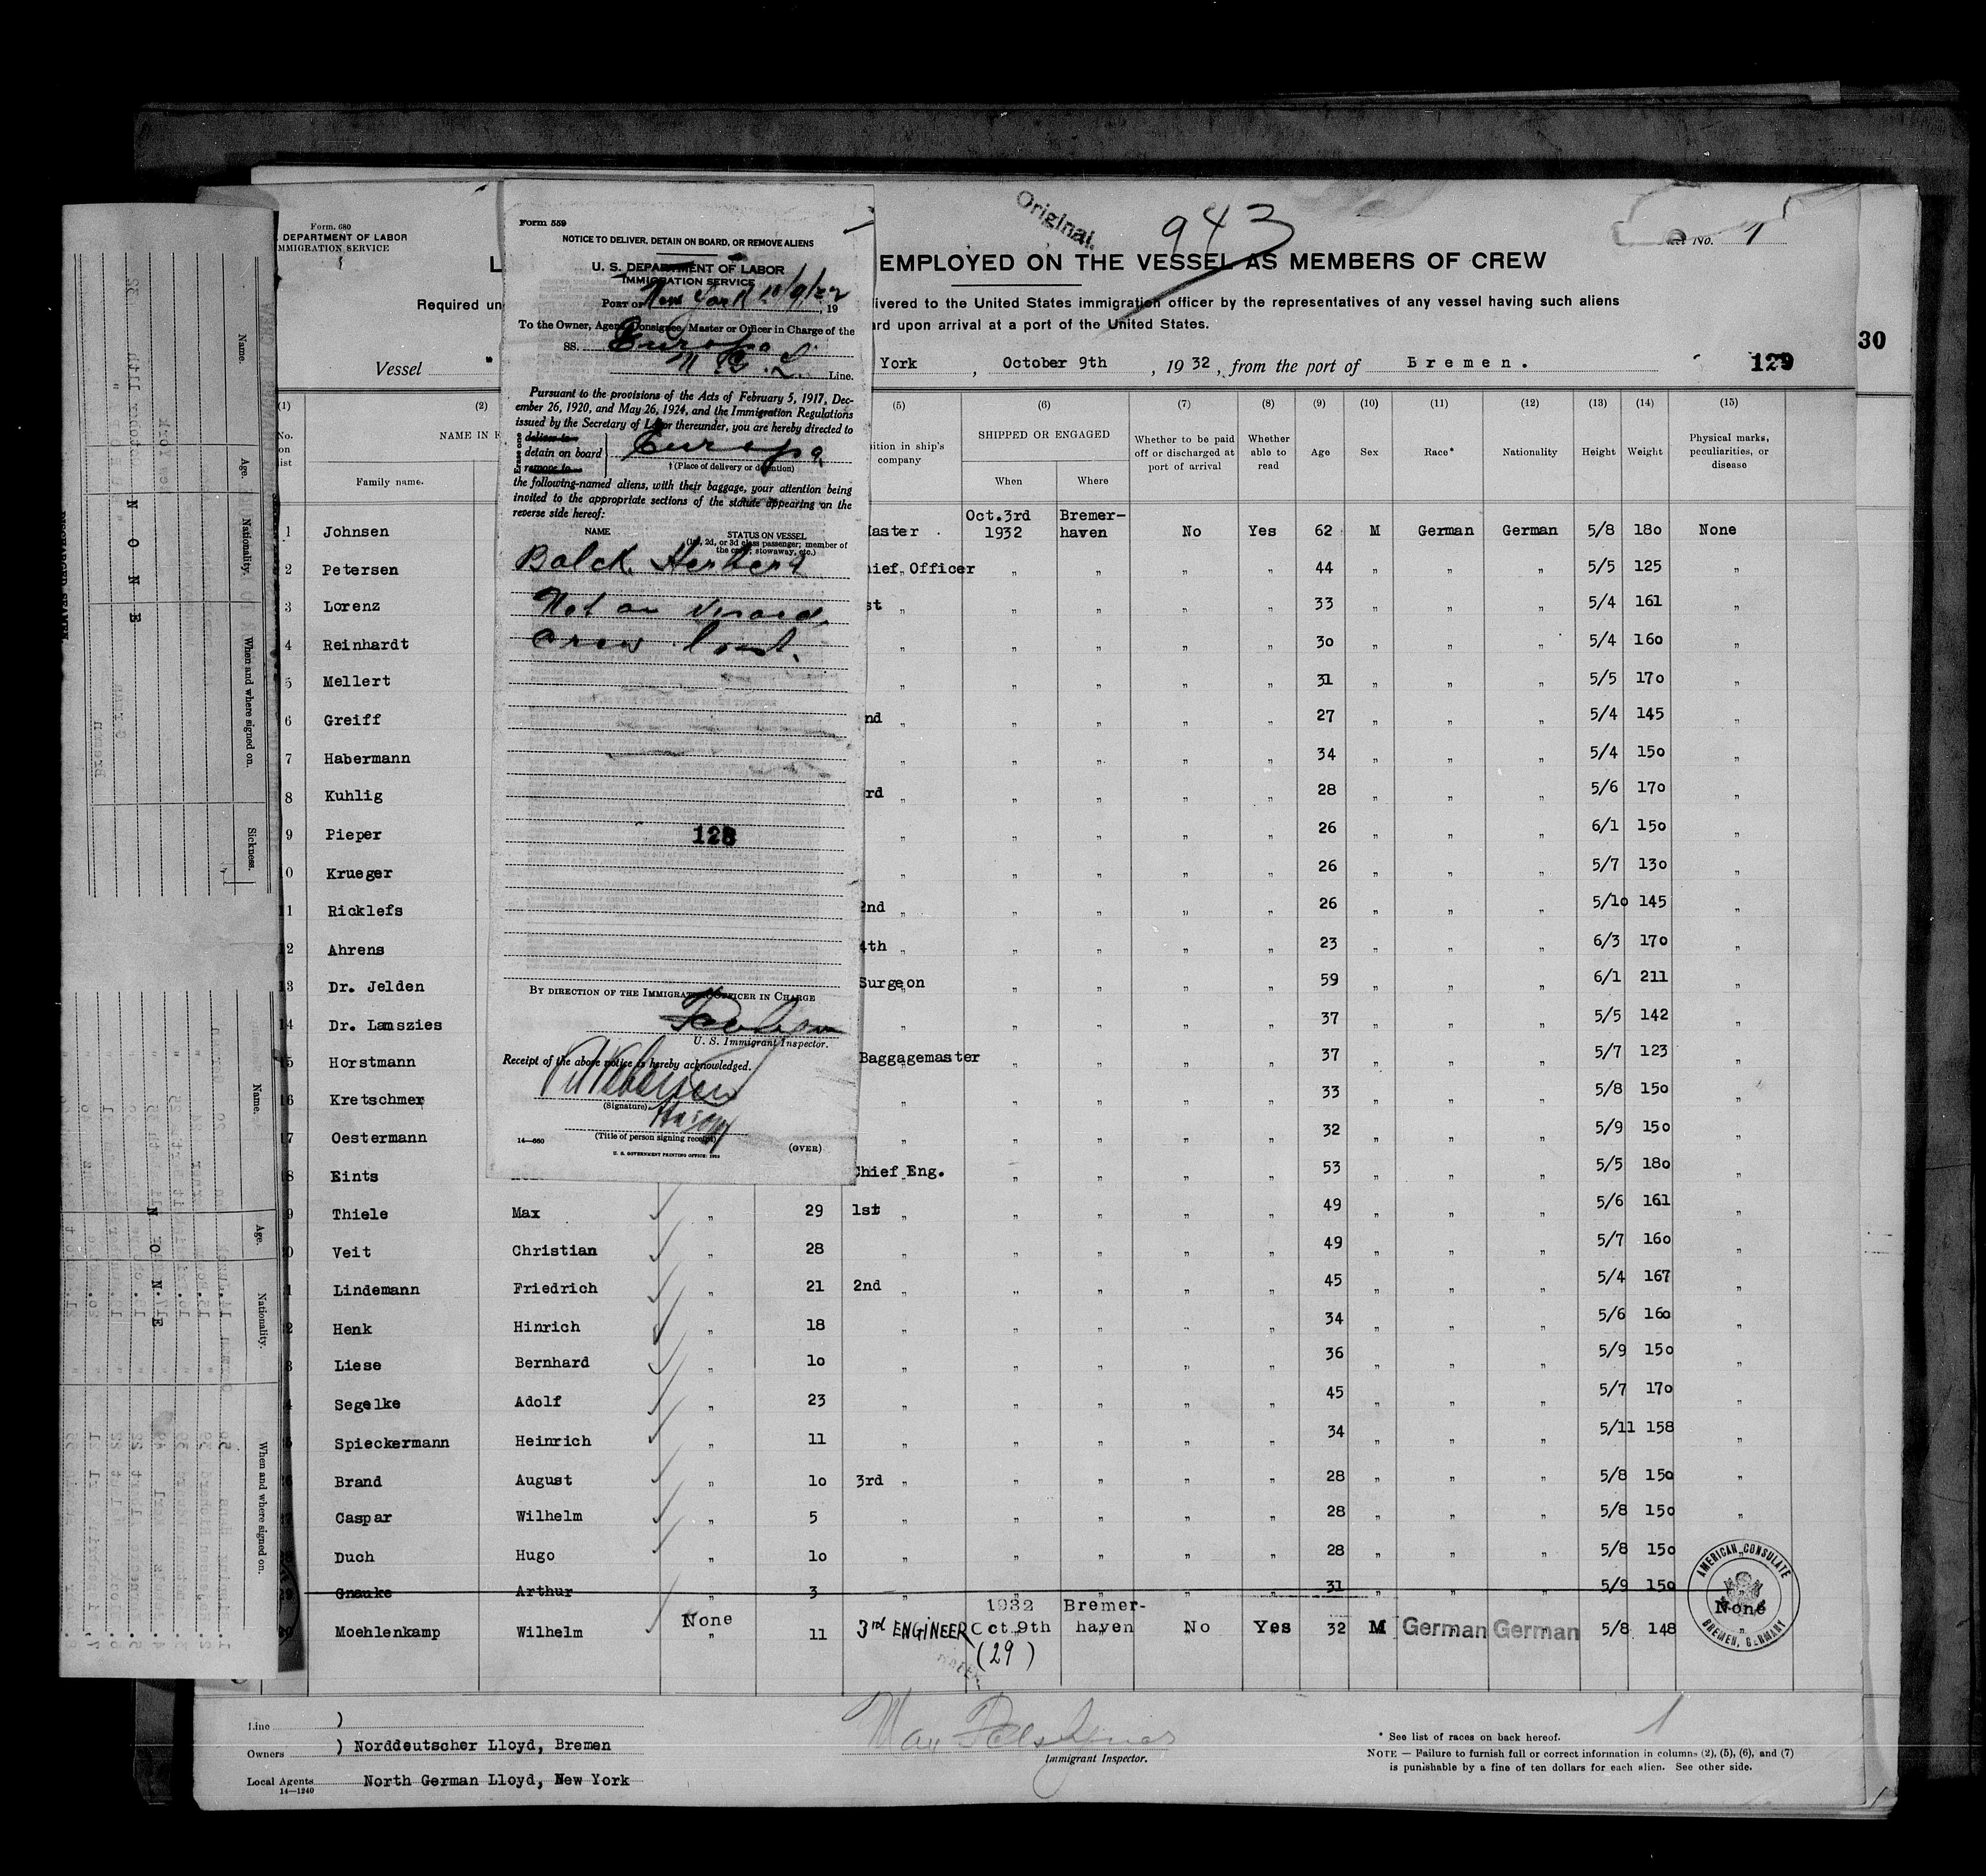 Form. 680
DEPARTMENT OF LABOR
IMMIGRATION SERVICE
Original.
943
No. 1
EMPLOYED ON THE VESSEL AS MEMBERS OF CREW
Required un
livered to the United States immigration officer by the representatives of any vessel having such aliens
ard upon arrival at a port of the United States.
Vessel " York, October 9th, 1932, from the port of Bremen.
129
30
Form 559
NOTICE TO DELIVER, DETAIN ON BOARD, OR REMOVE ALIENS
U. S. DEPARTMENT OF LABOR
IMMIGRATION SERVICE
PORT OF New York 10/9/32, 19
To the Owner, Agent, Consignee, Master or Officer in Charge of the
SS. Europa
N. G. L. Line.
Pursuant to the provisions of the Acts of February 5, 1917, Dec-
ember 26, 1920, and May 26, 1924, and the Immigration Regulations
issued by the Secretary of Labor thereunder, you are hereby directed to
Erase one
deliver to
detain on board
remove to
Europa
† (Place of delivery or detention)
the following-named aliens, with their baggage, your attention being
invited to the appropriate sections of the statute appearing on the
reverse side hereof:
NAME STATUS ON VESSEL
(1st, 2d, or 3d class passenger; member of
the crew; stowaway, etc.)
Balck Herbert
Not on visaed
crew list.
128
BY DIRECTION OF THE IMMIGRATION OFFICER IN CHARGE
U. S. Immigrant Inspector.
Receipt of the above notice is hereby acknowledged.
(Signature)
(Title of person signing receipt)
14—660 (OVER)
U. S. GOVERNMENT PRINTING OFFICE: 1929
(1) (2) (5) (6) (7) (8) (9) (10) (11) (12) (13) (14) (15)
No. on list
NAME IN F
Family name.
ition in ship's company
SHIPPED OR ENGAGED
When Where
Whether to be paid off or discharged at port of arrival
Whether able to read
Age Sex Race* Nationality Height Weight
Physical marks, peculiarities, or disease
1 Johnsen Master Oct.3rd 1932 Bremer-haven No Yes 62 M German German 5/8 180 None
2 Petersen hief Officer " " " " 44 " " " 5/5 125 "
3 Lorenz st " " " " " 33 " " " 5/4 161 "
4 Reinhardt " " " " " 30 " " " 5/4 160 "
5 Mellert " " " " " 31 " " " 5/5 170 "
6 Greiff nd " " " " " 27 " " " 5/4 145 "
7 Habermann " " " " " 34 " " " 5/4 150 "
8 Kuhlig rd " " " " " 28 " " " 5/6 170 "
9 Pieper " " " " " 26 " " " 6/1 150 "
0 Krueger " " " " " 26 " " " 5/7 130 "
11 Ricklefs 2nd " " " " " 26 " " " 5/10 145 "
12 Ahrens 4th " " " " " 23 " " " 6/3 170 "
13 Dr. Jelden Surgeon " " " " 59 " " " 6/1 211 "
14 Dr. Lamszies " " " " " 37 " " " 5/5 142 "
15 Horstmann Baggagemaster " " " " 37 " " " 5/7 123 "
16 Kretschmer " " " " " 33 " " " 5/8 150 "
17 Oestermann " " " " " 32 " " " 5/9 150 "
18 Eints Chief Eng. " " " " 53 " " " 5/5 180 "
9 Thiele Max " 29 1st " " " " " 49 " " " 5/6 161 "
0 Veit Christian " 28 " " " " " 49 " " " 5/7 160 "
1 Lindemann Friedrich " 21 2nd " " " " " 45 " " " 5/4 167 "
2 Henk Hinrich " 18 " " " " " 34 " " " 5/6 160 "
3 Liese Bernhard " 10 " " " " " 36 " " " 5/9 150 "
4 Segelke Adolf " 23 " " " " " 45 " " " 5/7 170 "
5 Spieckermann Heinrich " 11 " " " " " 34 " " " 5/11 158 "
26 Brand August " 10 3rd " " " " " 28 " " " 5/8 150 "
27 Caspar Wilhelm " 5 " " " " " 28 " " " 5/8 150 "
28 Duch Hugo " 10 " " " " " 28 " " " 5/8 150 "
29 Gnauke Arthur " 3 " " " " " 31 " " " 5/9 150
30 Moehlenkamp Wilhelm None " 11 3rd ENGINEER 1932 Oct 9th Bremer-haven No Yes 32 M German German 5/8 148 None
(29)
AMERICAN CONSULATE
BREMEN, GERMANY
Line )
Owners ) Norddeutscher Lloyd, Bremen
Local Agents North German Lloyd, New York
14—1240
Immigrant Inspector.
* See list of races on back hereof.
NOTE — Failure to furnish full or correct information in columns (2), (5), (6), and (7)
is punishable by a fine of ten dollars for each alien. See other side.
1
Name. Age. Nationality. When and where signed on. Sickness.
NONE
Name. Age. Nationality. When and where signed on.
NONE